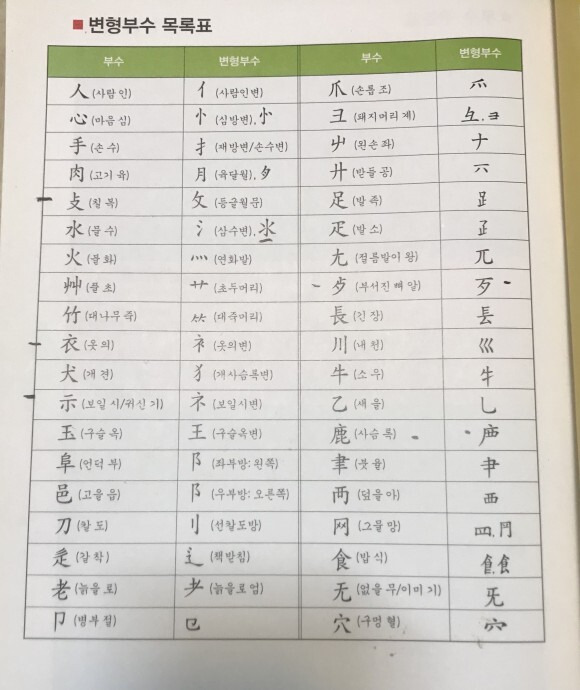 ■ 변형부수 목록표
부수 변형부수 부수 변형부수
人 (사람 인) 亻 (사람인변) 爪 (손톱 조) 爫
心 (마음 심) 忄 (심방변), 㣺 彐 (돼지머리 계) 彑, ⺕
手 (손 수) 扌 (재방변/손수변) 屮 (왼손 좌) 𠂇
肉 (고기 육) 月 (육달월), 夕 廾 (받들 공) 六
攴 (칠 복) 攵 (등글월문) 足 (발 족) 𧾷
水 (물 수) 氵 (삼수변), 氺 疋 (발 소) 𤴔
火 (불 화) 灬 (연화발) 尢 (절름발이 왕) 兀
艸 (풀 초) 艹 (초두머리) 歺 (부서진 뼈 알) 歹
竹 (대나무 죽) ⺮ (대죽머리) 長 (긴 장) 镸
衣 (옷 의) 衤 (옷의변) 川 (내 천) 巛
犬 (개 견) 犭 (개사슴록변) 牛 (소 우) 牜
示 (보일 시/귀신 기) 礻 (보일시변) 乙 (새 을) 乚
玉 (구슬 옥) 王 (구슬옥변) 鹿 (사슴 록)
阜 (언덕 부) 阝 (좌부방: 왼쪽) 聿 (붓 율) 肀
邑 (고을 읍) 阝 (우부방: 오른쪽) 襾 (덮을 아) 覀
刀 (칼 도) 刂 (선칼도방) 网 (그물 망) 罒, 冂
辵 (갈 착) 辶 (책받침) 食 (밥 식) 飠, 𩙿
老 (늙을 로) 耂 (늙을로엄) 无 (없을 무/이미 기) 旡
卩 (병부 절) 㔾 穴 (구멍 혈) 穴